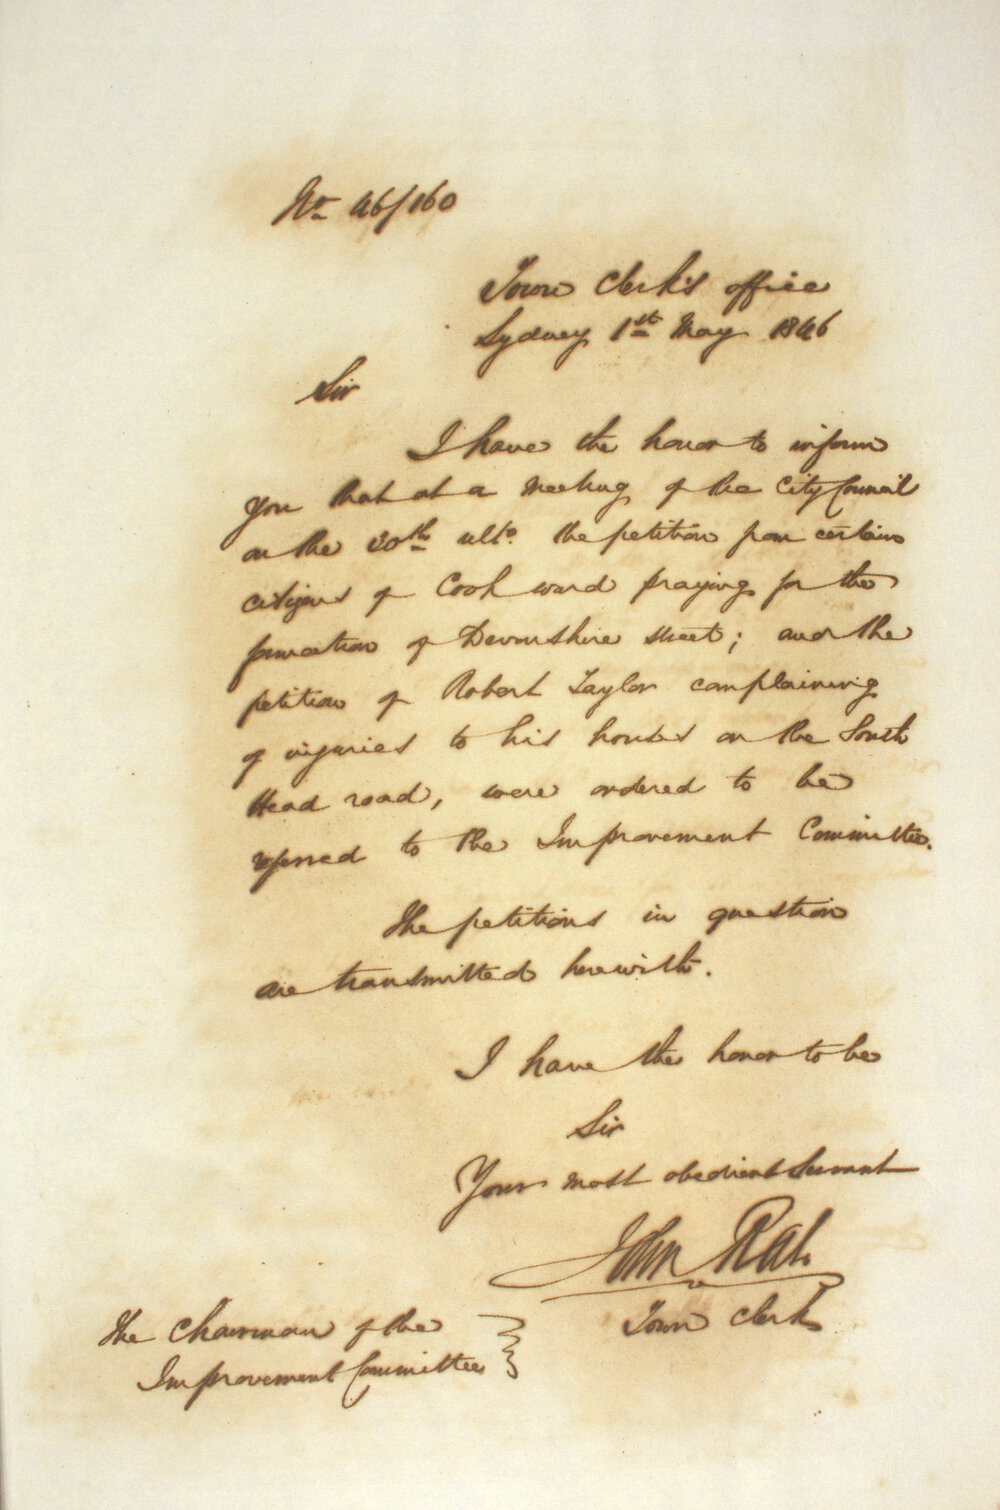 No 46/160
Town Clerk's office
Sydney 1st May 1846
Sir
I have the honor to inform
you that at a Meeting of the City Council
on the 30th ulto. the petition from certain
citizens of Cook ward praying for the
formation of Devonshire street; and the
petition of Robert Taylor complaining
of injuries to his houses on the South
Head road, were ordered to be
referred to the Improvement Committee.
The petitions in question
are transmitted herewith.
I have the honor to be
Sir
Your most obedient Servant
John Rae
Town Clerk
The Chairman of the
Improvement Committee